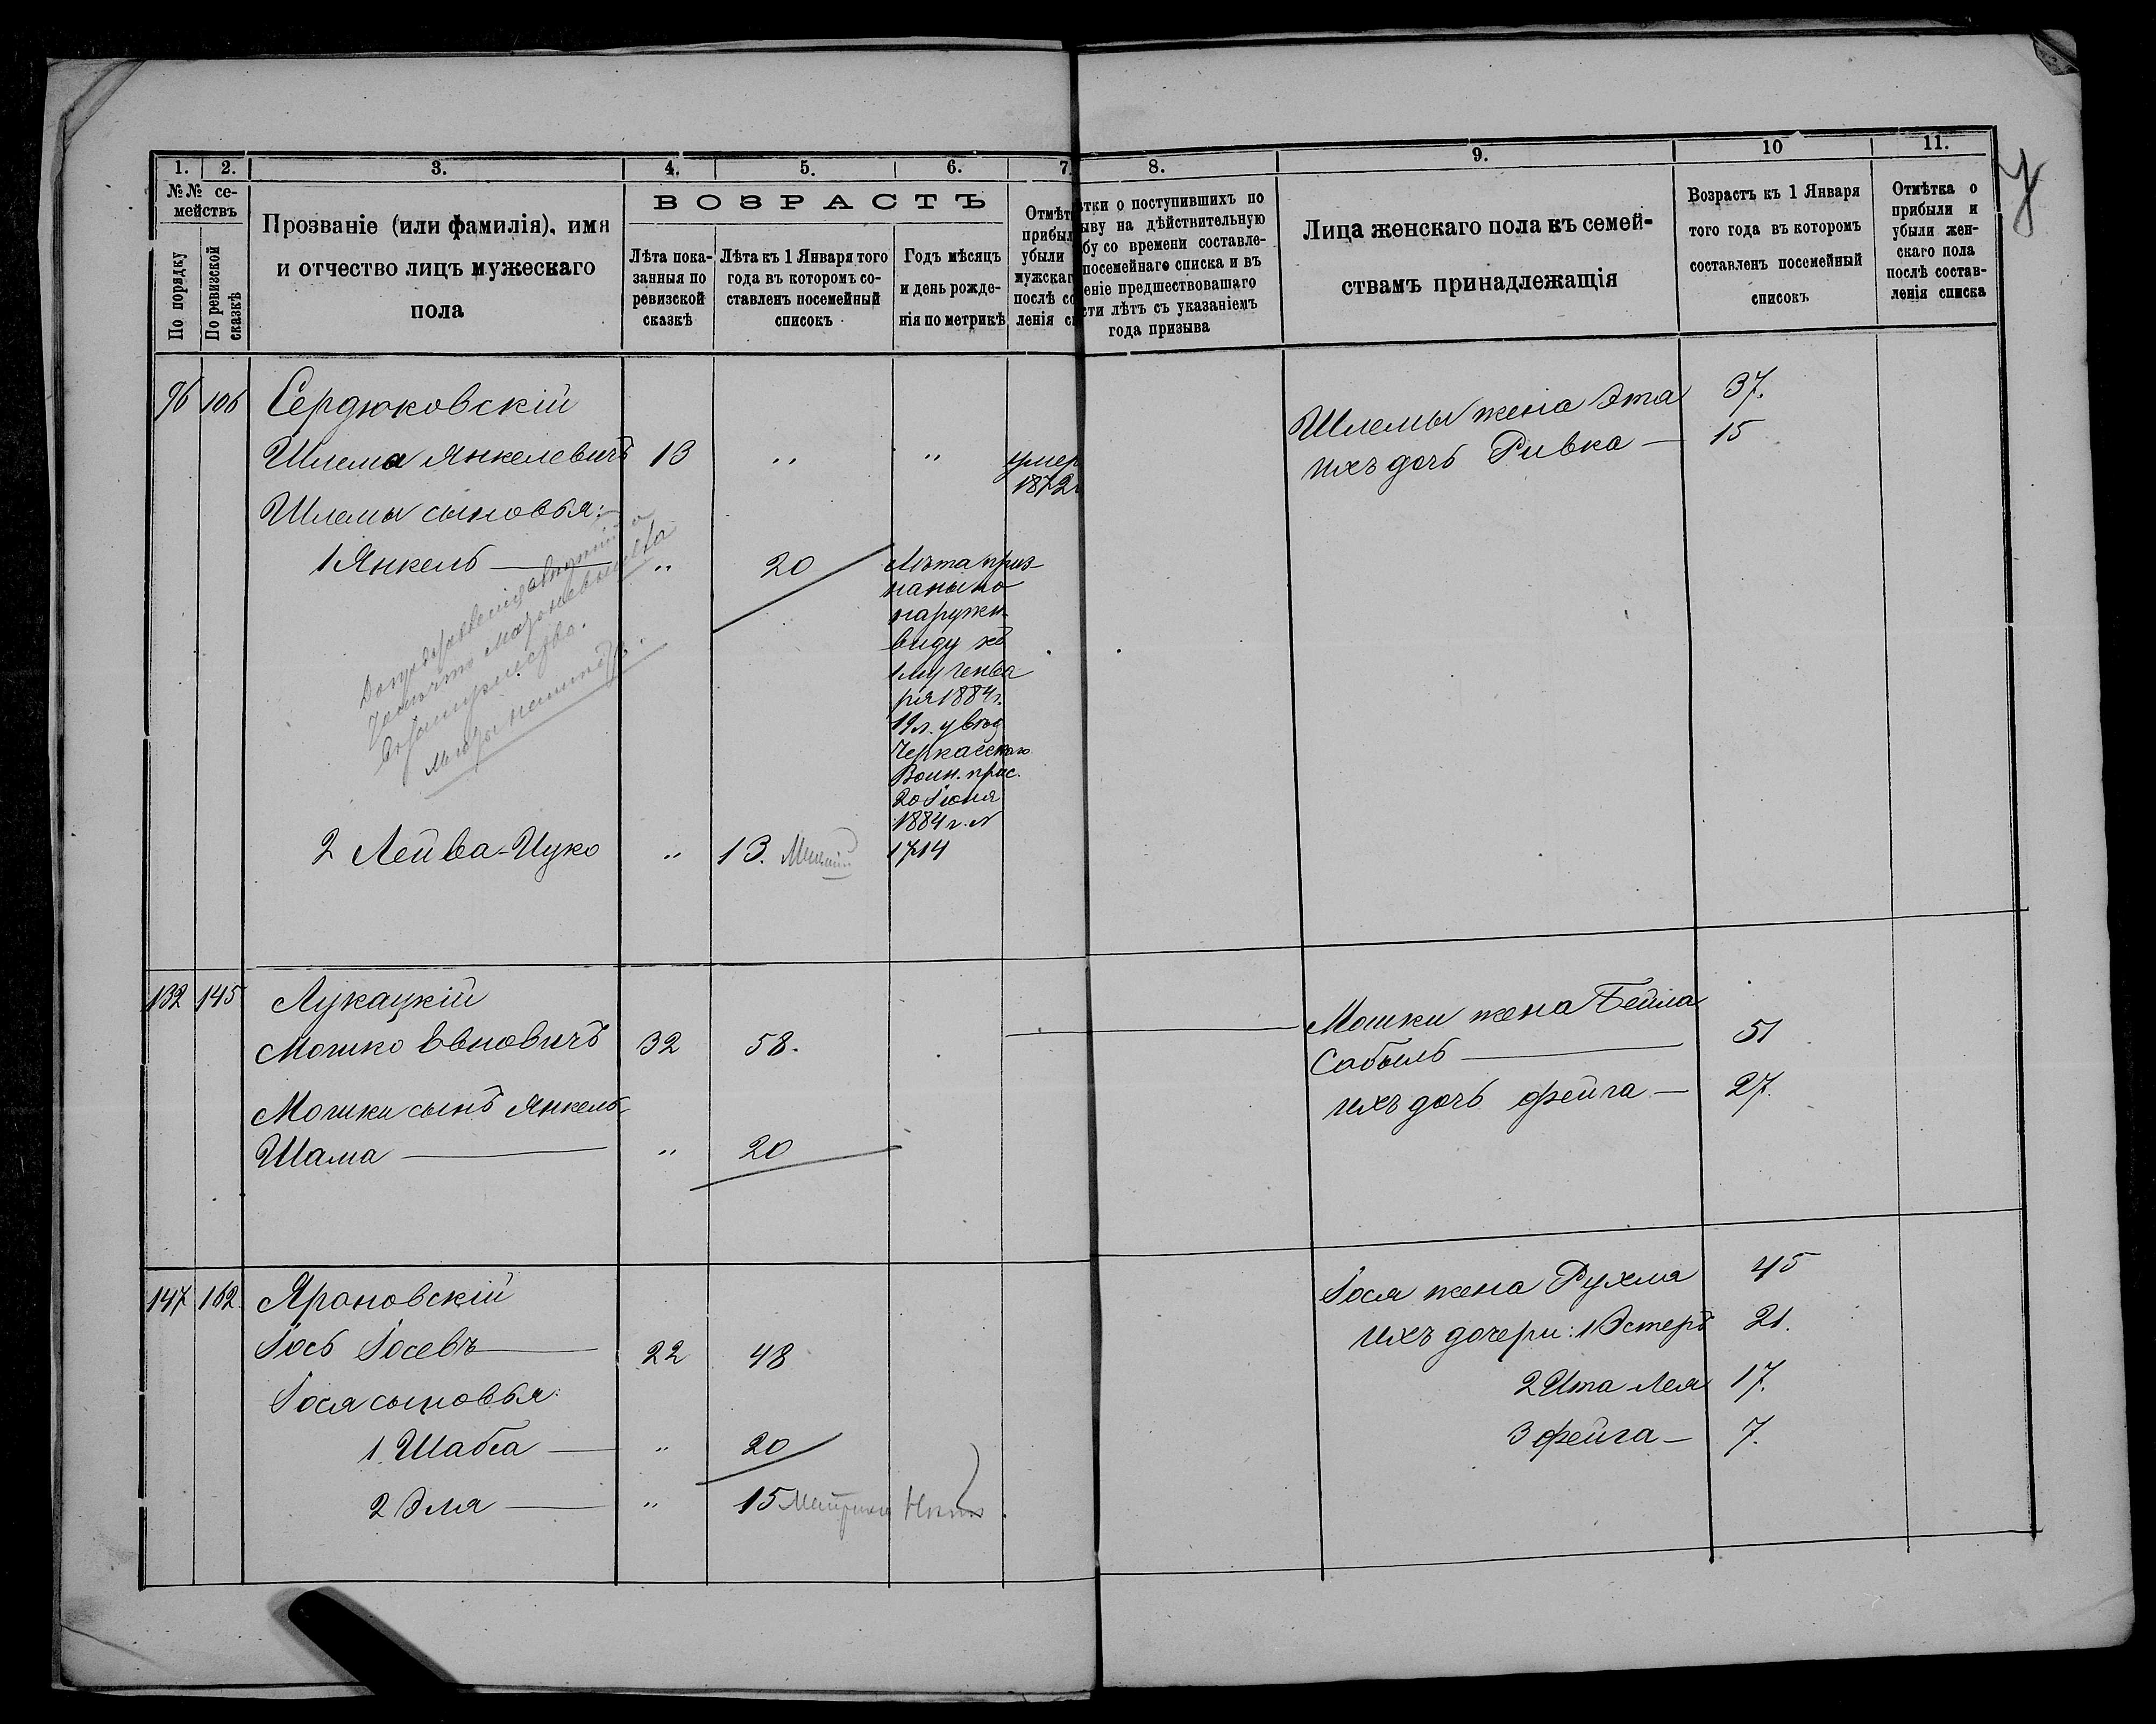 1. 2. 3. 4. 5. 6. 7. 8. 9. 10 11.
№№ се-
мействъ
По порядку
По ревизской
сказкѣ
Прозваніе (или фамилія), имя
и отчество лицъ мужескаго
пола
ВОЗРАСТЪ
Лѣта пока-
занныя по
ревизской
сказкѣ
Лѣта къ 1 Января того
года въ которомъ со-
ставленъ посемейный
списокъ
Годъ мѣсяцъ
и день рожде-
нія по метрикѣ
Отмѣт
прибыл
убыли
мужскаг
послѣ со
ленія сп
тки о поступившихъ по
ыву на дѣйствительную
бу со времени составле-
посемейнаго списка и въ
еніе предшествовашаго
сти лѣтъ съ указаніемъ
года призыва
Лица женскаго пола къ семей-
ствамъ принадлежащія
Возрастъ къ 1 Января
того года въ которомъ
составленъ посемейный
списокъ
Отмѣтка о
прибыли и
убыли жен-
скаго пола
послѣ состав-
ленія списка
96 106 Сердюковскій
Шлема Янкелевичъ 13 " " умер
1872г
Шлемы сыновья:
1 Янкель — " 20
Лѣта приз-
наны по
наружн.
виду къ
1му генва-
ря 1884 г.
19 л. у
Черкасскаго
Воин. прис.
20 Іюня
1884 г. №
1714
2 Лейба-Ицко " 13.
Шлемы жена Эта 37.
ихъ дочь Ривка — 15
132 145 Лукацкій
Мошко Евновичъ 32 58.
Мошки сынъ Янкель-
Шама — " 20
Мошки жена Бейла
Собыль — 51
ихъ дочь Фейга — 27.
147 162. Яроновскій
Іось Іосевъ — 22 48
Іося сыновья:
1. Шабса — " 20
2 Эля — " 15
Іося жена Рухля 45
ихъ дочери: 1 Эстеръ 21.
2 Ита Лея 17.
3 Фейга — 7.